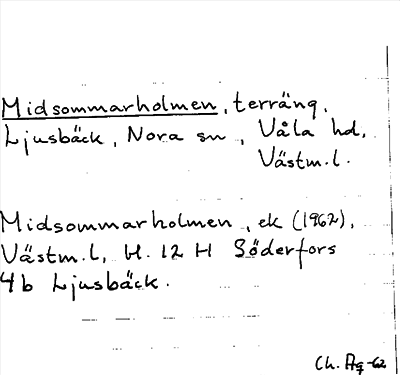 Midsommarholmen, terräng,
Ljusbäck, Nora sn, Våla hd,
Västm.l.
Midsommarholmen, ek (1962),
Västm.l, H. 12 H Söderfors
4b Ljusbäck.
Ch. Ag -62